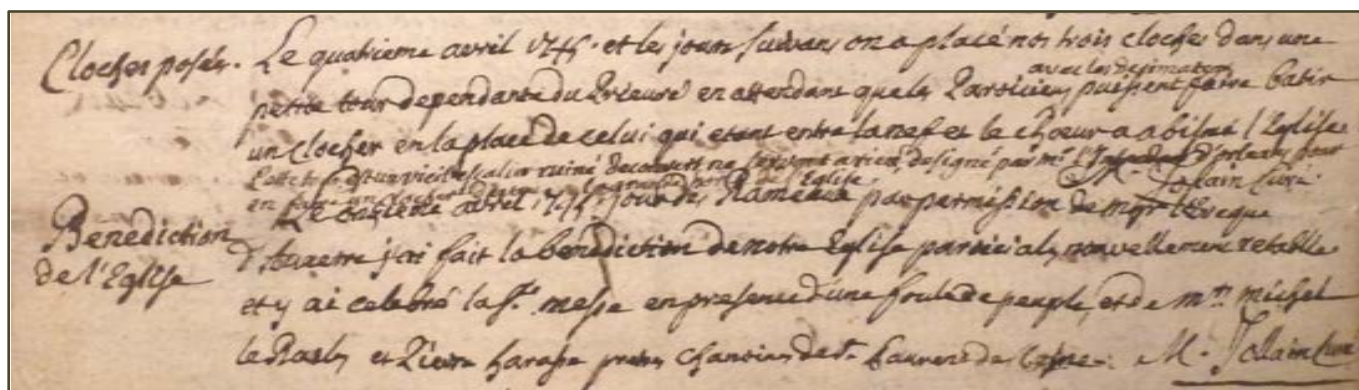 Cloches posées. Le quatrieme avril 1745. et les jours suivans on a placé nos trois cloches dans une
avec les decimateurs
petite tour dependante du Prieuré en attendant que les Paroiciens puissent faire batir
un clocher en la place de celui qui etant entre la nef et le choeur a abismé l'Eglise
vieil escalier ruiné decouvert ne servant a rien, designé par mr. d'orleans pour
en faire un clocher l'Eglise. M. Jolain Curé.
Le onzieme avril 1745. jour des Rameaux par permission de mgr l'Eveque
Benediction d'Auxerre j'ai fait la benediction de notre Eglise paroicials nouvellement retablie
de l'Eglise et y ai celebré la ste. messe en presence d'une foule de peuple, et de mrs. michel
et Pierre harasse pretres chanoines de st. Laurent de Cosne. M. Jollain Curé